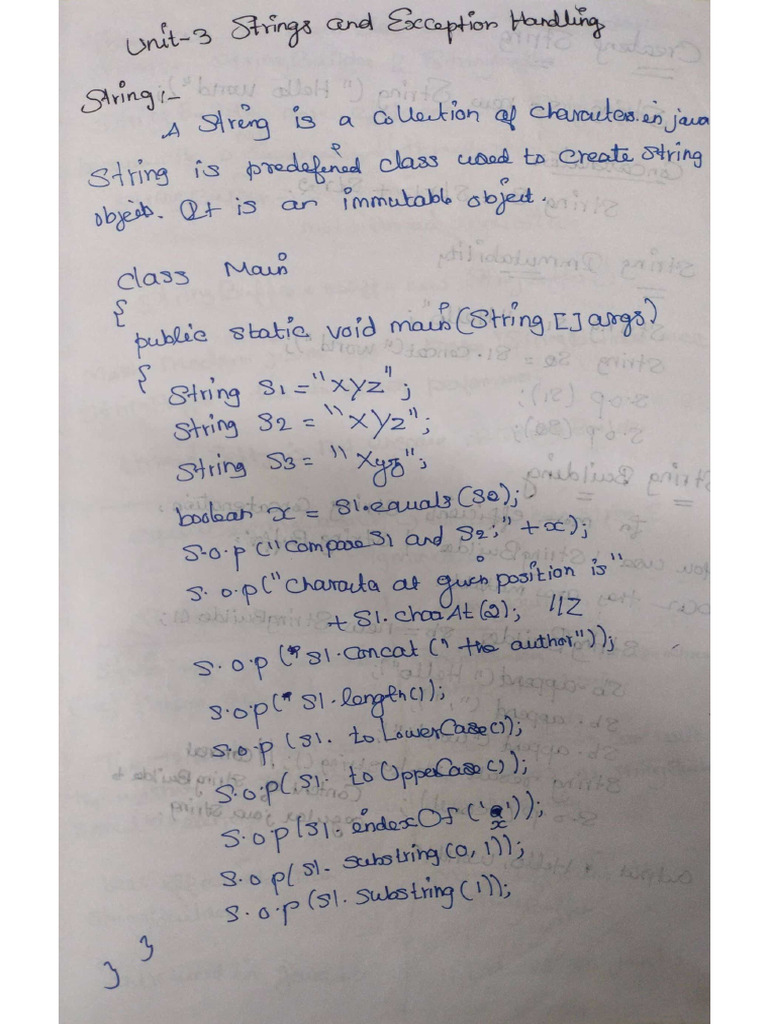 Unit-3 Strings and Exception Handling
String:-
A String is a collection of characters. in java
String is predefined class used to create string
object. It is an immutable object.
class Main
{
public static void main(String [] args)
{
String S1 = "XYZ";
String S2 = "XYZ";
String S3 = "Xyz";
boolean x = S1.equals(S2);
S.o.p ("compare S1 and S2;" + x);
S.o.p("character at given position is"
+ S1.charAt(2); //Z
S.o.p (S1.concat (" the author"));
S.o.p( S1.length());
S.o.p (S1. to LowerCase());
S.o.p(S1. to UpperCase());
S.o.p(S1. indexOf('x'));
S.o.p( S1. substring(0, 1));
S.o.p (S1. substring(1));
}
}